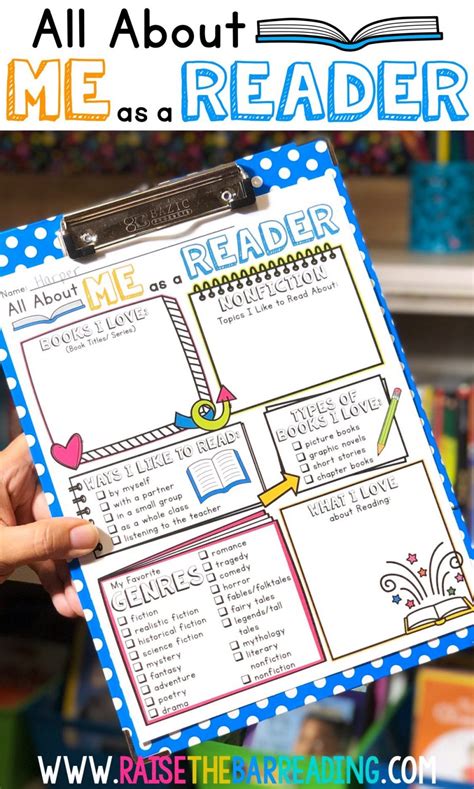 All About
ME as a READER
BAZIC
Name: Harper
All About ME as a READER
BOOKS I LOVE:
(Book Titles/ Series)
NONFICTION
Topics I Like to Read About:
WAYS I LIKE TO READ:
by myself
with a partner
in a small group
as a whole class
listening to the teacher
TYPES OF
BOOKS I LOVE:
picture books
graphic novels
short stories
chapter books
My Favorite
GENRES:
fiction
realistic fiction
historical fiction
science fiction
mystery
fantasy
adventure
poetry
drama
romance
tragedy
comedy
horror
fables/folktales
fairy tales
legends/tall
tales
mythology
literary
nonfiction
nonfiction
WHAT I LOVE
about Reading:
WWW.RAISETHEBARREADING.COM